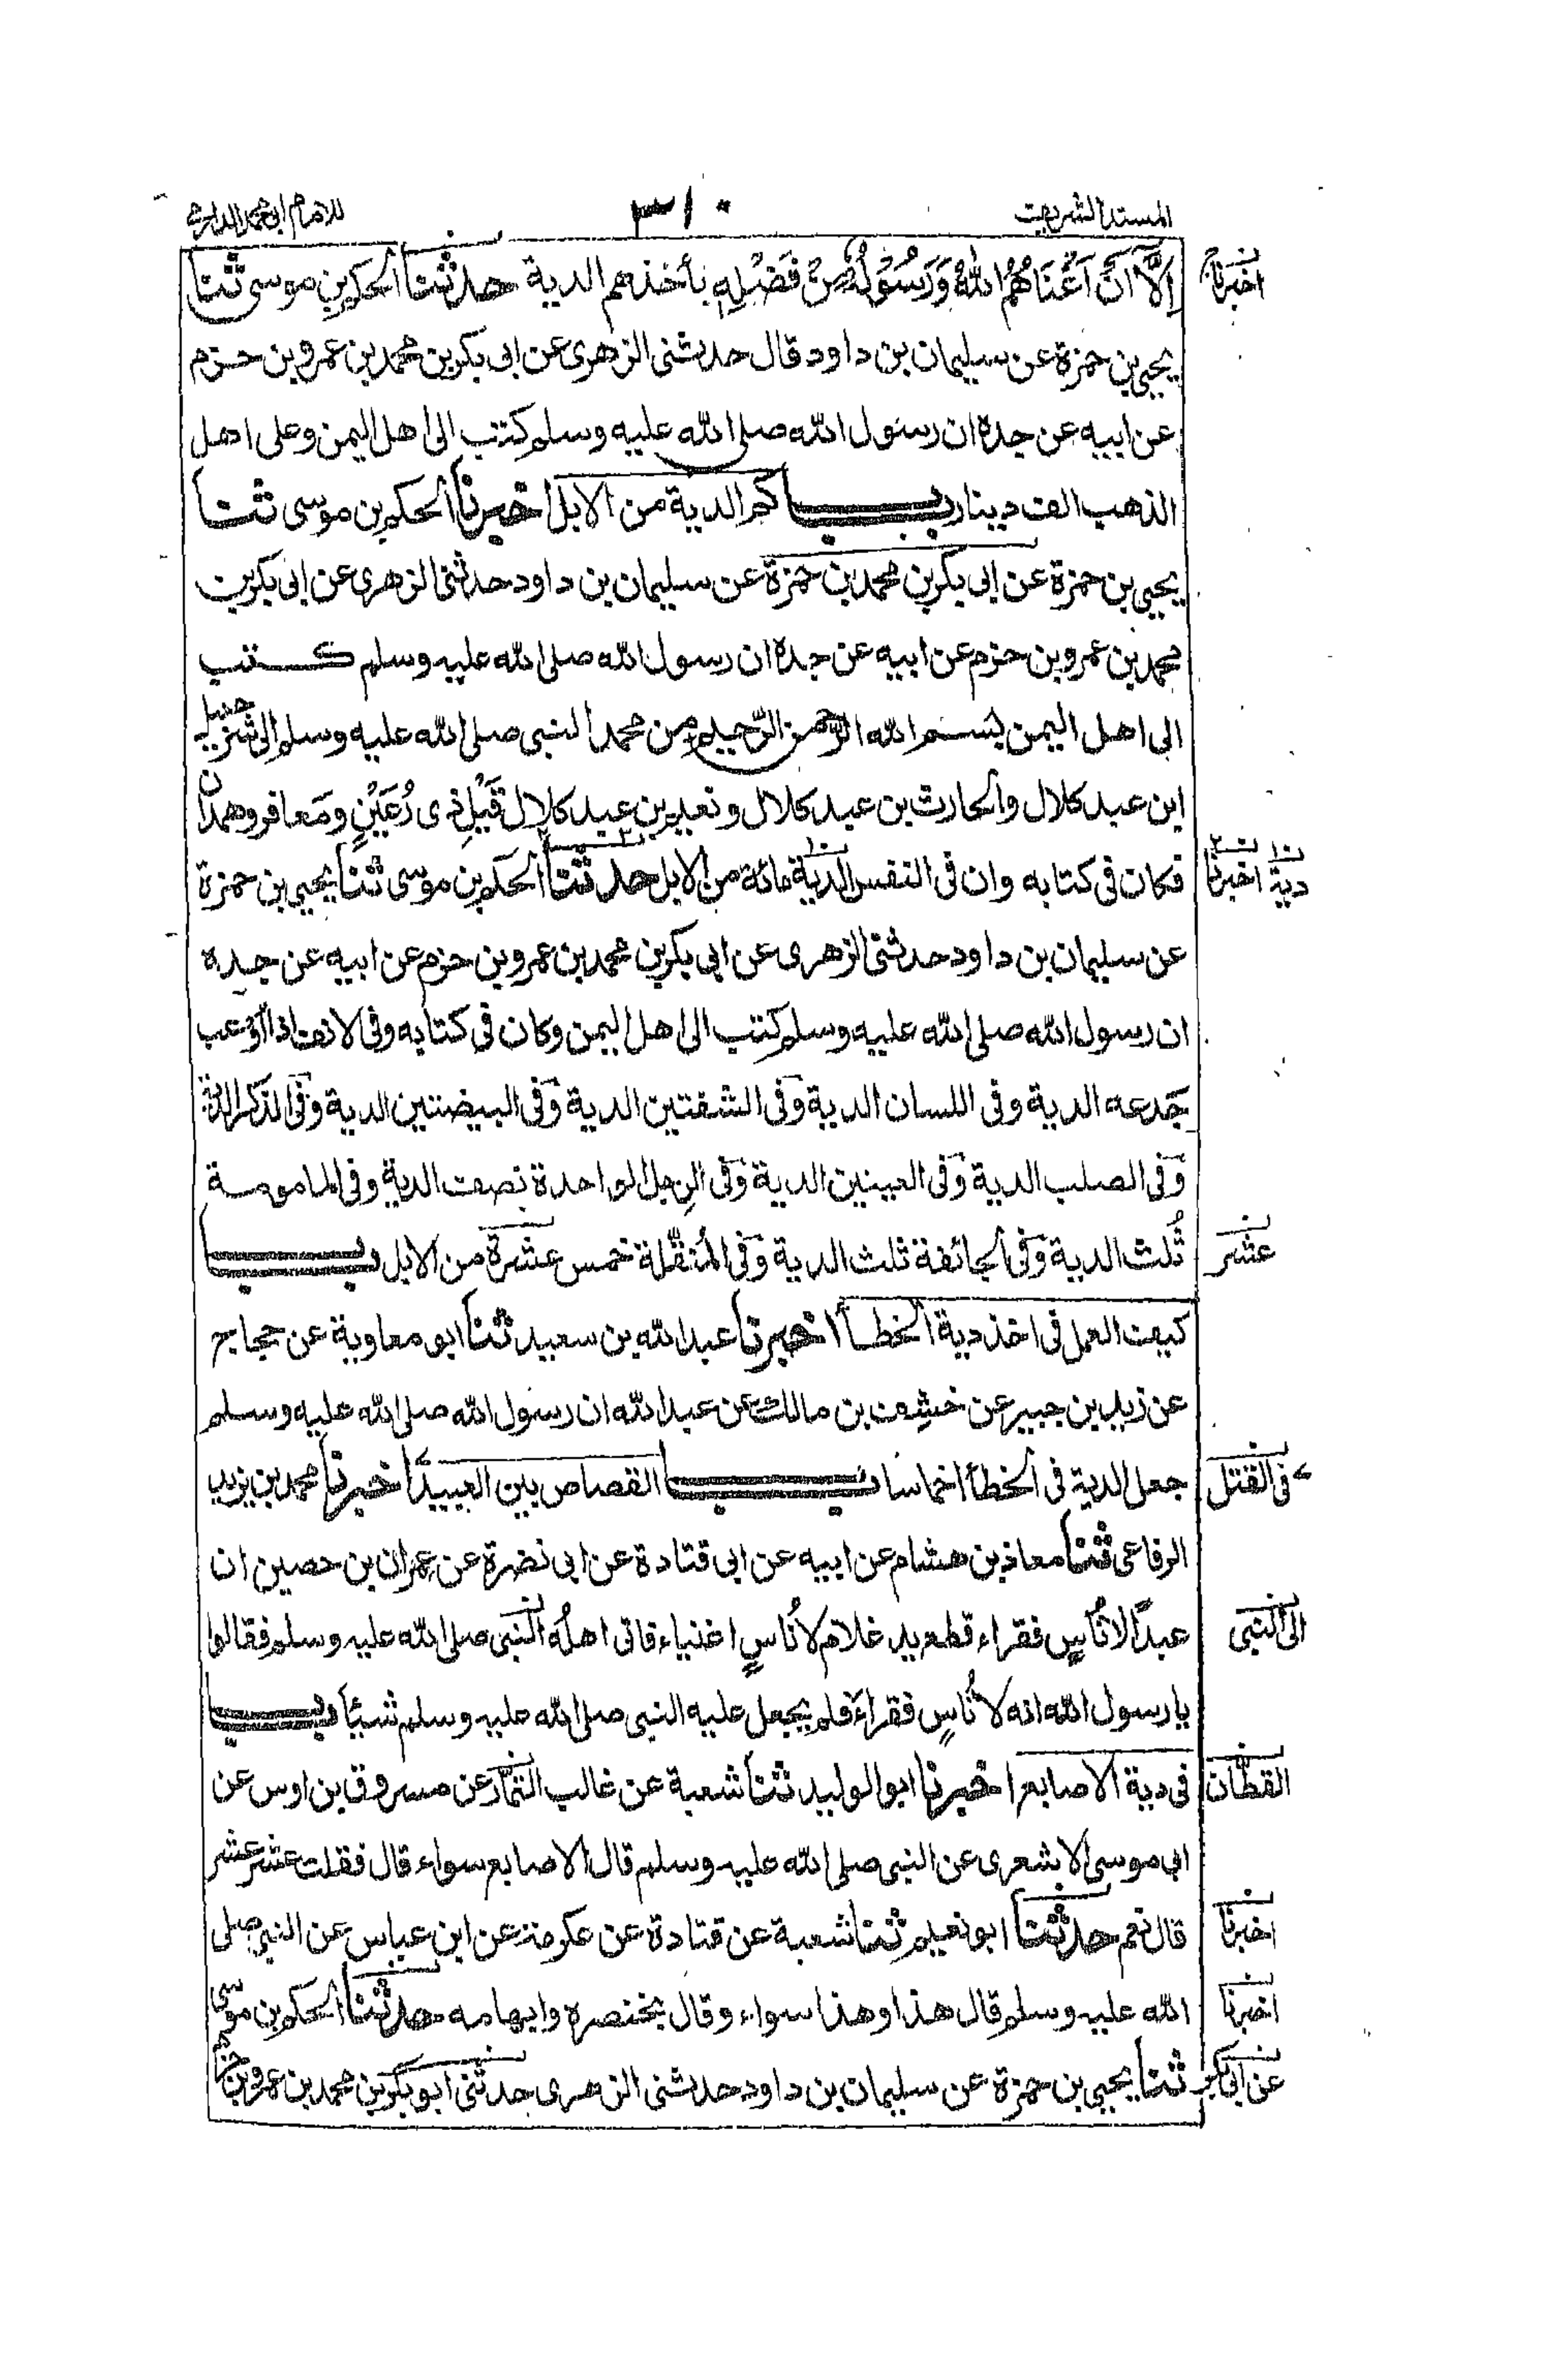 المسند الشريف
٣١٠
للامام ابى محمد الدارمى
اِلَّا اَنْ اَغْنَاهُمُ اللهُ وَرَسُوْلُهٗ مِنْ فَضْلِهٖ بأخذهم الدية حدثنا الحكم بن موسى ثنا
اخبرنا
يحيى بن حمزة عن سليمان بن داود قال حدثنى الزهرى عن ابى بكر بن محمد بن عمرو بن حزم
عن ابيه عن جده ان رسول الله صلى الله عليه وسلم كتب الى اهل اليمن وعلى اهل
الذهب الف دينار باب كم الدية من الابل اخبرنا الحكم بن موسى ثنا
يحيى بن حمزة عن ابى بكر بن محمد بن حمزة عن سليمان بن داود حدثنى الزهرى عن ابى بكر بن
محمد بن عمرو بن حزم عن ابيه عن جده ان رسول الله صلى الله عليه وسلم كتب
الى اهل اليمن بسم الله الرحمن الرحيم من محمد النبى صلى الله عليه وسلم الى شرحبيل
ابن عبد كلال والحارث بن عبد كلال ونعيم بن عبد كلال قَيْلِ ذى رُعَيْنٍ ومَعافر وهمدان
فكان فى كتابه وان فى النفس الدية مائة من الابل حدثنا الحكم بن موسى ثنا يحيى بن حمزة
دية اخبرنا
عن سليمان بن داود حدثنى الزهرى عن ابى بكر بن محمد بن عمرو بن حزم عن ابيه عن جده
ان رسول الله صلى الله عليه وسلم كتب الى اهل اليمن وكان فى كتابه وفى الانف اذا اُوْعب
جَدعه الدية وفى اللسان الدية وَفى الشفتين الدية وَفى البيضتين الدية وَفى الذكر الدية
وَفى الصلب الدية وَفى العينين الدية وَفى الرِجل الواحدة نصف الدية وفى المامومة
ثُلث الدية وَفى الجائفة ثلث الدية وَفى المُنَقِّلة خمس عشرة من الابل باب
عشر
كيف العمل فى اخذ دية الخطأ اخبرنا عبد الله بن سعيد ثنا ابو معاوية عن حجاج
عن زيد بن جبير عن خشِف بن مالك عن عبد الله ان رسول الله صلى الله عليه وسلم
جعل الدية فى الخطأ اخماسا باب القصاص بين العبيد اخبرنا محمد بن يزيد
فى القتل
الرفاعى ثنا معاذ بن هشام عن ابيه عن ابى قتادة عن ابى نضرة عن عمران بن حصين ان
عبدًا لاُناسٍ فقراء قطع يد غلام لاُناسٍ اغنياء فاتى اهلُه النبى صلى الله عليه وسلم فقالوا
الى النبى
يا رسول الله انه لاُناسٍ فقراء فلم يجعل عليه النبى صلى الله عليه وسلم شيئا باب
فى دية الاصابع اخبرنا ابو الوليد ثنا شعبة عن غالب التمّار عن مسروق بن اوس عن
القطّان
ابى موسى الاشعرى عن النبى صلى الله عليه وسلم قال الاصابع سواء قال فقلت عشر عشر
قال نعم حدثنا ابو نعيم ثنا شعبة عن قتادة عن عكرمة عن ابن عباس عن النبى صلى
اخبرنا
الله عليه وسلم قال هذا وهذا سواء وقال بخنصره وابهامه حدثنا الحكم بن موسى
اخبرنا
ثنا يحيى بن حمزة عن سليمان بن داود حدثنى الزهرى حدثنى ابو بكر بن محمد بن عمرو بن حزم
عن ابى بكر